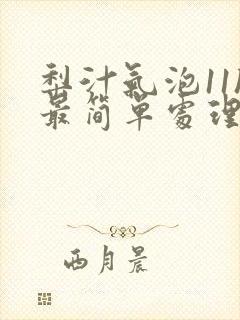 梨汁氣泡11
最简單處理
西月晨